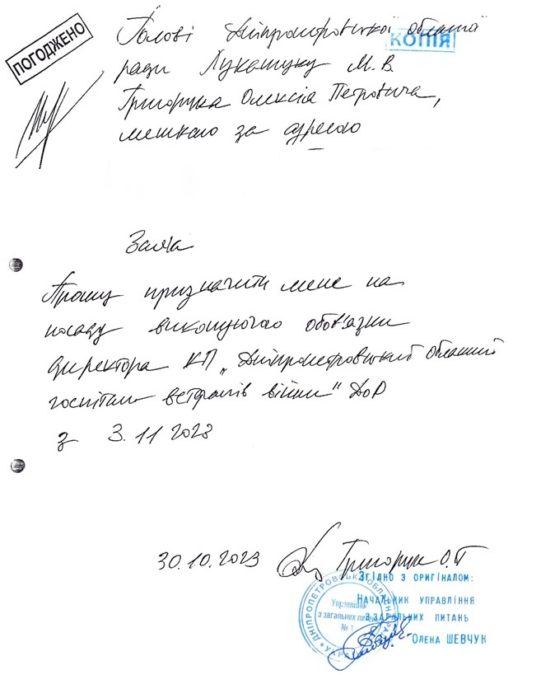 ПОГОДЖЕНО
Голові Дніпропетровської обласної
КОПІЯ
ради Лукашуку М.В
Григорука Олексія Петровича,
мешкаю за адресою
Заява
Прошу призначити мене на
посаду виконуючого обов'язки
директора КП „Дніпропетровський обласний
госпіталь ветеранів війни" ДОР
з 3.11 2023
30.10.2023 Григорук О.П
Згідно з оригіналом:
Начальник управління
з загальних питань
Олена ШЕВЧУК
Управління
з загальних питань
№ 1